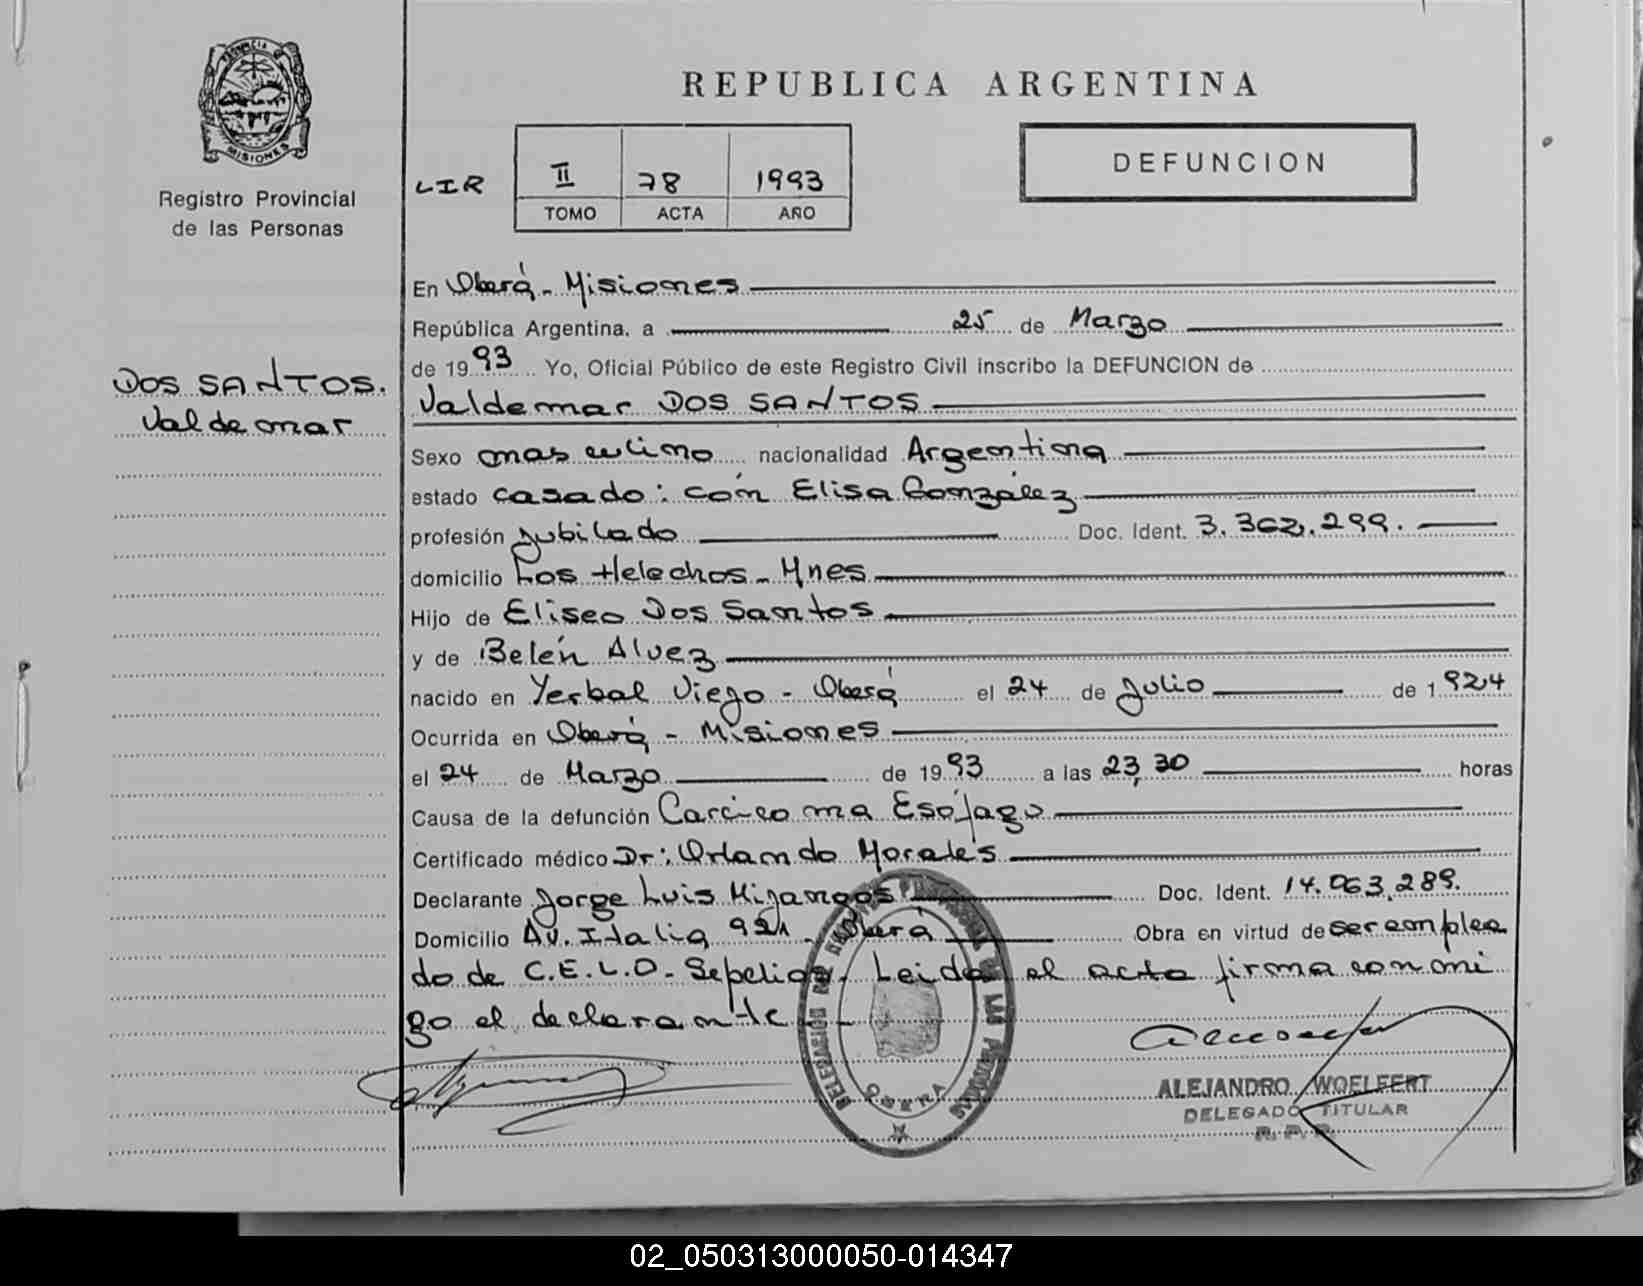 PROVINCIA DE
MISIONES
Registro Provincial
de las Personas
DOS SANTOS.
Valdemar
REPUBLICA ARGENTINA
LIR II 78 1993
TOMO ACTA AÑO
DEFUNCION
En Oberá - Misiones
República Argentina, a 25 de Marzo
de 1993 Yo, Oficial Público de este Registro Civil inscribo la DEFUNCION de
Valdemar DOS SANTOS
Sexo masculino nacionalidad Argentina
estado casado: con Elisa González
profesión Jubilado Doc. Ident. 3.362.299.
domicilio Los Helechos - Mnes
Hijo de Eliseo Dos Santos
y de Belén Alvez
nacido en Yerbal Viejo - Oberá el 24 de Julio de 1924
Ocurrida en Oberá - Misiones
el 24 de Marzo de 1993 a las 23,30 horas
Causa de la defunción Carcicoma Esófago
Certificado médico Dr: Orlando Morales
Declarante Jorge Luis Mijangos Doc. Ident. 14.063.289.
Domicilio Av. Italia 921 - Oberá Obra en virtud de ser emplea
do de C.E.L.O. - Sepelios. Leida el acta firma conmi
go el declarante
DELEGACION REGISTRO PROVINCIAL DE LAS PERSONAS
OBERA
ALEJANDRO WOELFERT
DELEGADO TITULAR
R.P.P.
02_050313000050-014347